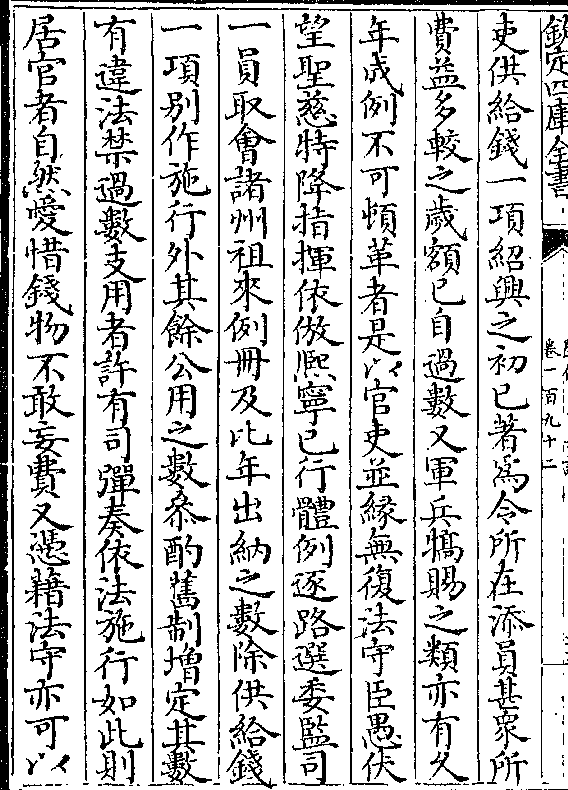 欽定四庫全書
卷一百九十二
吏供給錢一項紹興之初已著為令所在添員甚衆所
費益多較之歲額已自過數又軍兵犒賜之類亦有久
年成例不可頓革者是以官吏並緣無復法守臣愚伏
望聖慈特降指揮依倣熙寧已行體例逐路選委監司
一員取會諸州祖來例冊及比年出納之數除供給錢
一項别作施行外其餘公用之數叅酌舊制增定其數
有違法禁過數支用者許有司彈奏依法施行如此則
居官者自然愛惜錢物不敢妄費又憑藉法守亦可以